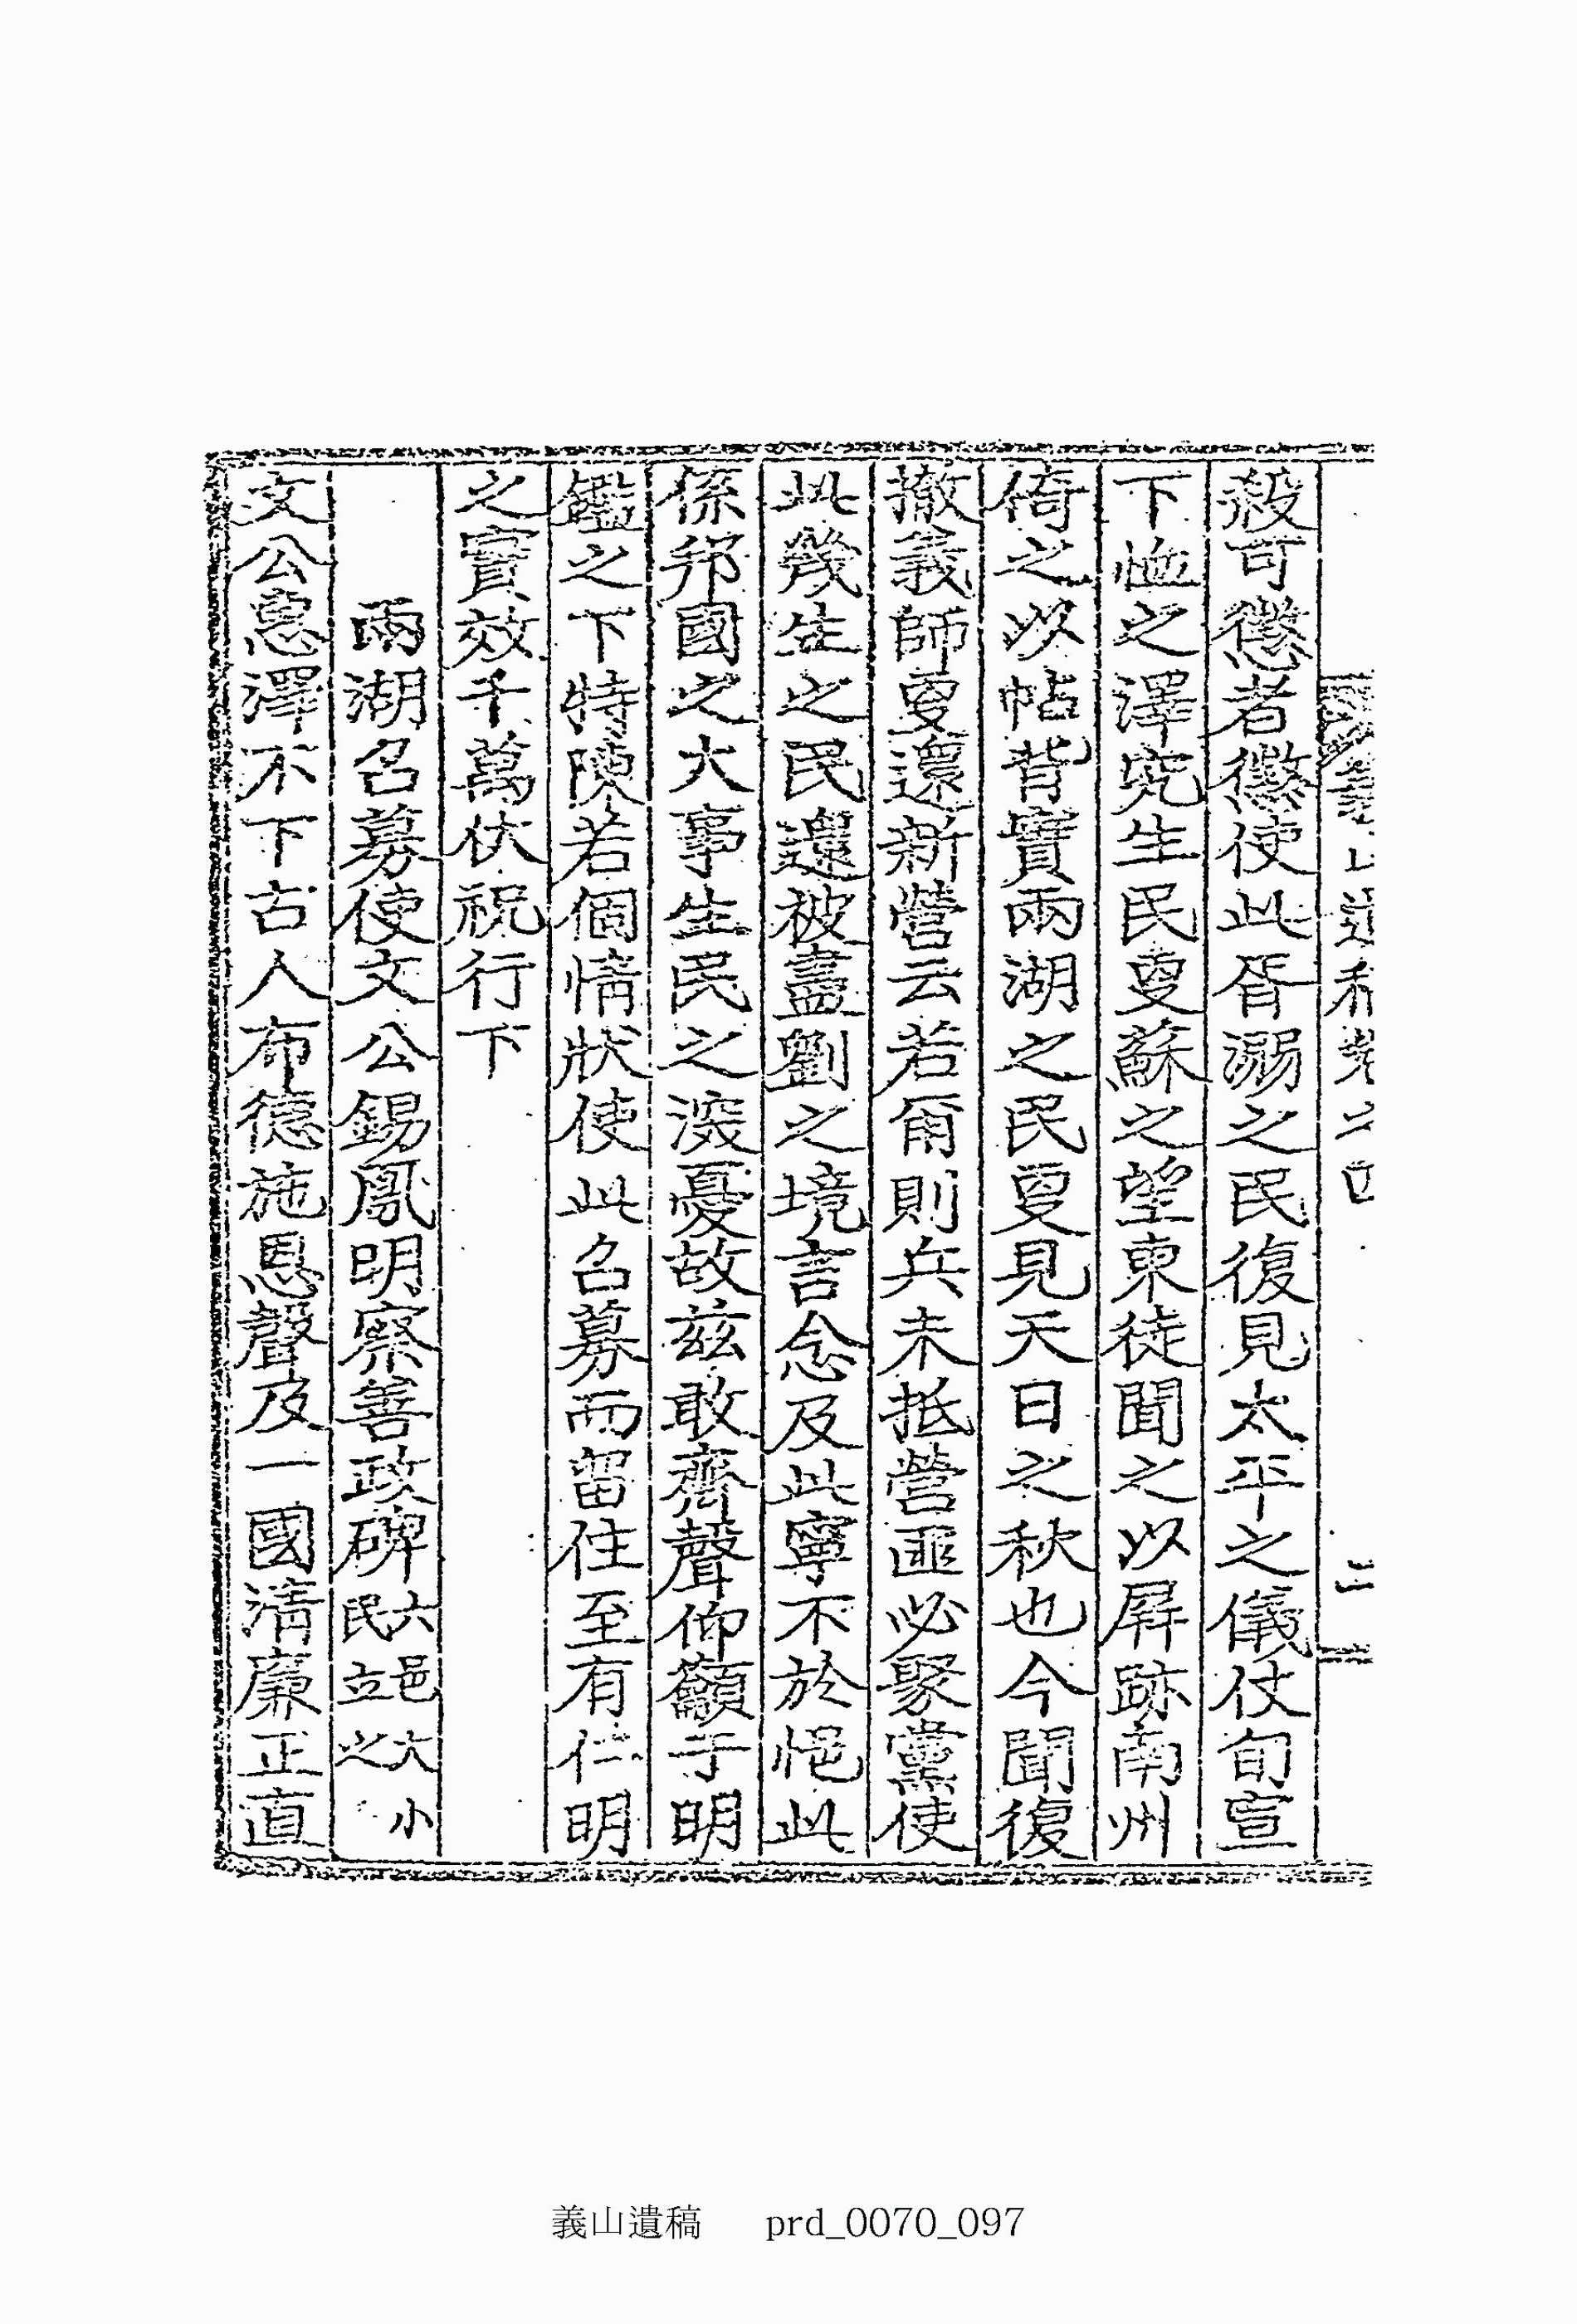 殺可懲者懲使此胥溺之民復見太平之儀仗旬宣
下恤之澤究生民更蘇之望東徒聞之以屛跡南州
倚之以帖背實兩湖之民更見天日之秋也今聞復
撤義師更還新營云若爾則兵未抵營匪必聚黨使
此幾生之民還被盡劉之境言念及此寧不於悒此
係邦國之大事生民之深憂故玆敢齊聲仰籲于明
鑑之下特陳若個情狀使此召募而留住至有仁明
之實效千萬伏祝行下
兩湖召募使文公錫鳳明察善政碑六邑大小民立之
文公惠澤不下古人布德施恩聲及一國淸廉正直
義山遺稿 prd_0070_097